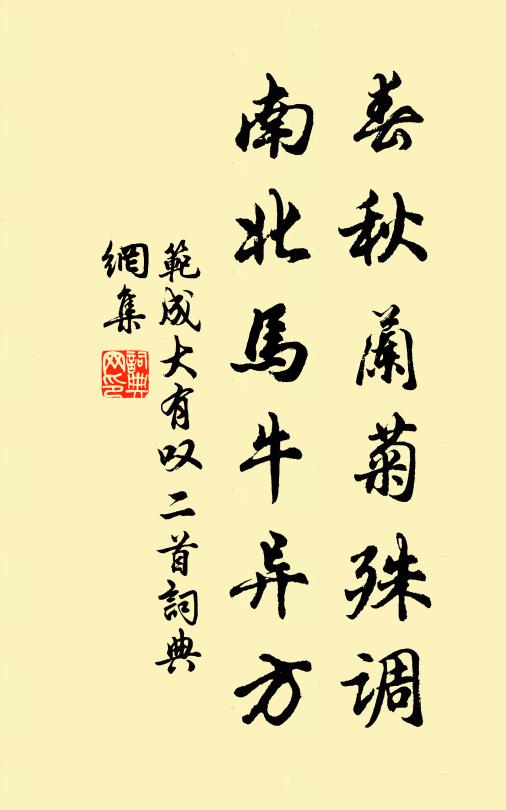 春秋蘭菊殊调
南北馬牛异方
範成大有叹二首詞典
網集
詞典
网印